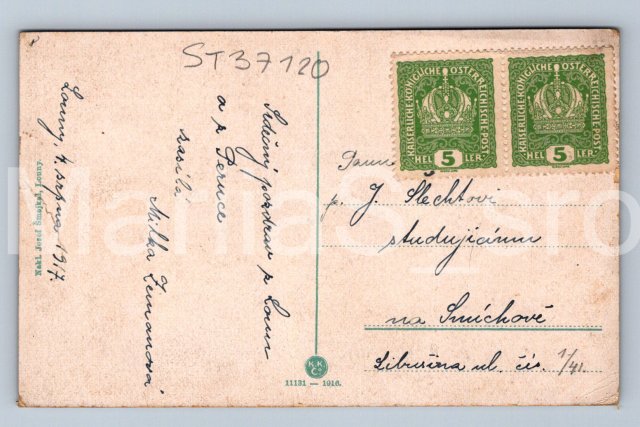 ST37120
Louny, 4. srpna 1917.
Srdečný pozdrav z Loun
a z Peruce
zasílá
Milka Zemanová
Nakl. Josef Šmejkal, Louny.
KAISERLICHE KÖNIGLICHE ÖSTERREICHISCHE POST
HELLER 5
KAISERLICHE KÖNIGLICHE ÖSTERREICHISCHE POST
HELLER 5
p. J. Šlechtovi
studujícímu
na Smíchově
Libušina ul. čís. 1/41.
K.K.
Co
11131 — 1916.
ManiaS_sro